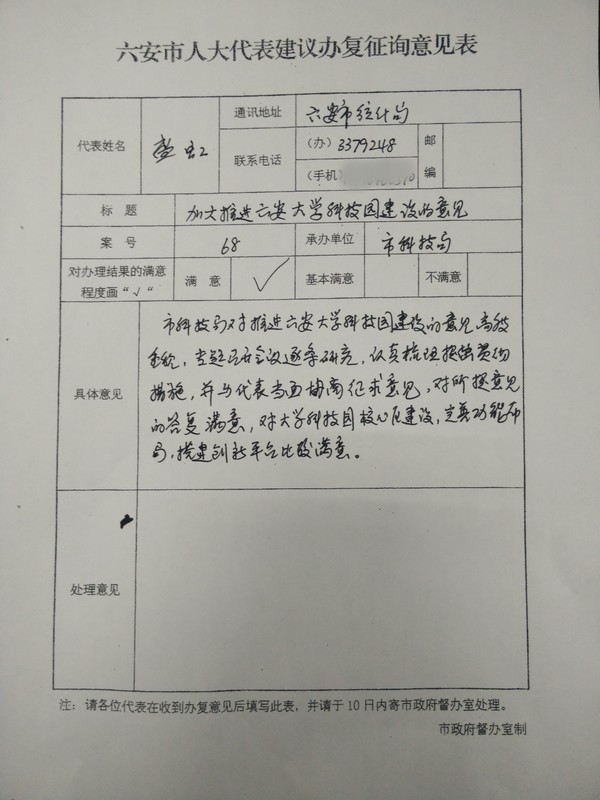 六安市人大代表建议办复征询意见表
代表姓名
通讯地址 六安市统计局
联系电话 (办) 3379248 邮编
(手机)
标 题 加大推进六安大学科技园建设的意见
案 号 68 承办单位 市科技局
对办理结果的满意程度画“√“ 满 意 √ 基本满意 不满意
具体意见
市科技局对推进六安大学科技园建设的意见高度
重视,专题召开会议逐条研究,认真梳理
措施,并与代表当面协商征求意见,对所提意见
的答复满意,对大学科技园核心区建设,完善功能布
局,搭建创新平台比较满意。
处理意见
注: 请各位代表在收到办复意见后填写此表,并请于10日内寄市政府督办室处理。
市政府督办室制